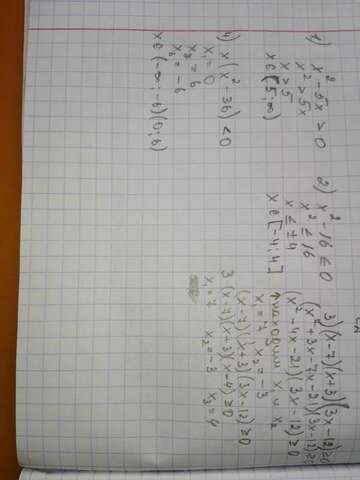 1) x² - 5x > 0
x² > 5x
x > 5
x ∈ (5; ∞)
2) x² - 16 ≤ 0
x² ≤ 16
x ≤ ±4
x ∈ [-4; 4]
3) (x-7)(x+3)(3x-12) ≥ 0
(x² + 3x - 7x - 21)(3x-12) ≥ 0
(x² - 4x - 21)(3x - 12) ≥ 0
находим x₁ и x₂
x₁ = 7 x₂ = -3
(x-7)(x+3)(3x-12) ≥ 0
3(x-7)(x+3)(x-4) ≥ 0
x₁ = 7 x₂ = -3 x₃ = 4
4) x(x² - 36) < 0
x₁ = 0
x₂ = 6
x₃ = -6
x ∈ (-∞; -6)(0; 6)